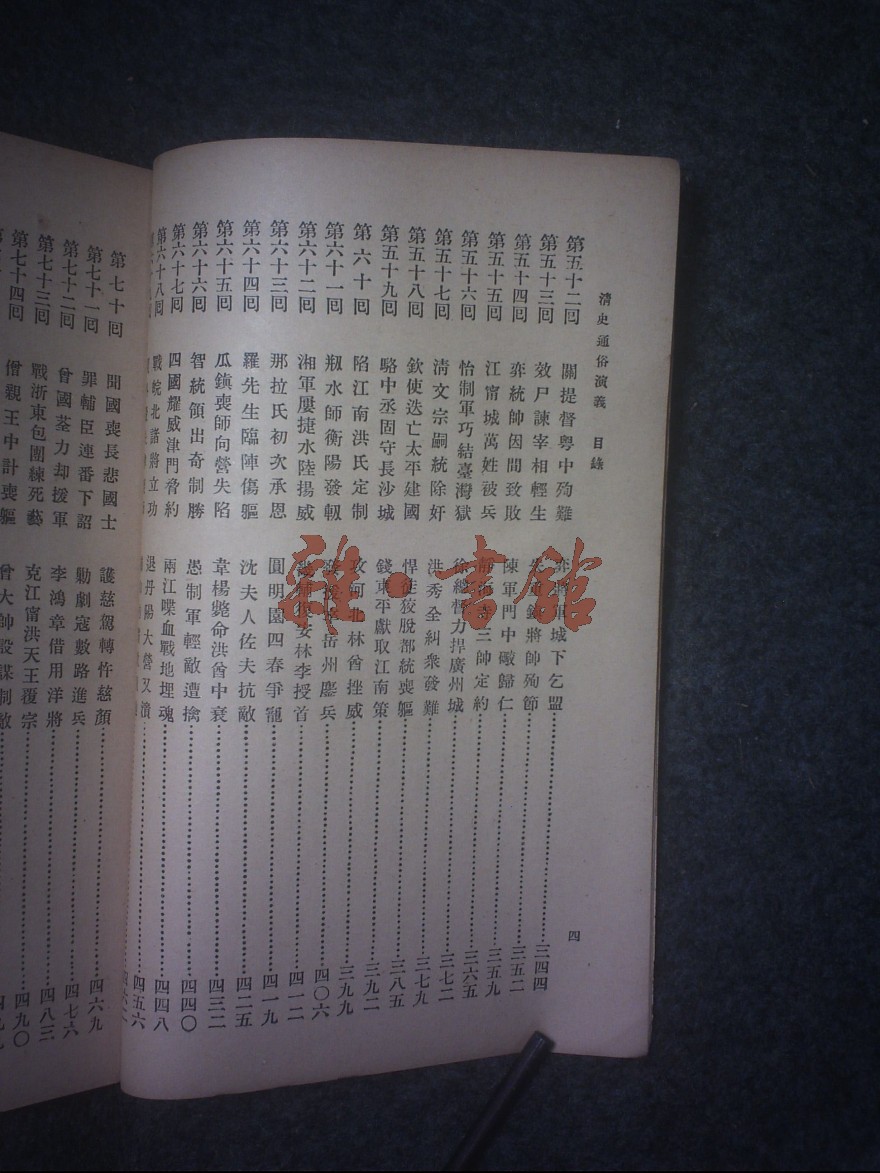 清史通俗演義 目錄
四
第五十二回 關提督粵中殉難 城下乞盟 三四四
第五十三回 效尸諫宰相輕生 將帥殉節 三五二
第五十四回 弈統帥因間致敗 陳軍門中礮歸仁 三五九
第五十五回 江甯城萬姓被兵 三帥定約 三六五
第五十六回 怡制軍巧結臺灣獄 徐總督力捍廣州城 三七二
第五十七回 清文宗嗣統除奸 洪秀全糾衆發難 三七九
第五十八回 欽使迭亡太平建國 悍徒狡脫都統喪軀 三八五
第五十九回 略中丞固守長沙城 錢東平獻取江南策 三九二
第六十回 陷江南洪氏定制 攻河北林酋挫威 三九九
第六十一回 剏水師衡陽發軔 岳州鏖兵 四〇六
第六十二回 湘軍屢捷水陸揚威 林李授首 四一二
第六十三回 那拉氏初次承恩 圓明園四春爭寵 四一九
第六十四回 羅先生臨陣傷軀 沈夫人佐夫抗敵 四二五
第六十五回 瓜鎮喪師向營失陷 韋楊斃命洪酋中衰 四三二
第六十六回 智統領出奇制勝 愚制軍輕敵遭擒 四四〇
第六十七回 四國耀威津門脅約 兩江喋血戰地埋魂 四四八
第六十八回 戰皖北諸將立功 退丹陽大營又潰 四五六
第七十回 聞國喪長悲國士 護慈駕轉忤慈顏 四六九
第七十一回 罪輔臣連番下詔 勦劇寇數路進兵 四七六
第七十二回 曾國荃力却援軍 李鴻章借用洋將 四八三
第七十三回 戰浙東包團練死藝 克江甯洪天王覆宗 四九〇
第七十四回 僧親王中計喪軀 曾大帥設謀制敵
雜書館